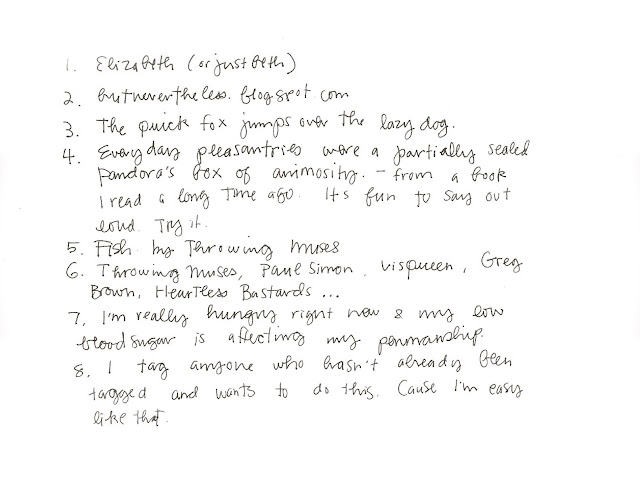 1. Elizabeth (or just beth)
2. butnevertheless.blogspot.com
3. The quick fox jumps over the lazy dog.
4. Everyday pleasantries were a partially sealed
Pandora's box of animosity. - from a book
I read a long time ago. It's fun to say out
loud. Try it.
5. Fish by Throwing Muses
6. Throwing Muses, Paul Simon, Visqueen, Greg
Brown, Heartless Bastards ...
7. I'm really hungry right now & my low
blood sugar is affecting my penmanship.
8. I tag anyone who hasn't already been
tagged and wants to do this. Cause I'm easy
like that.